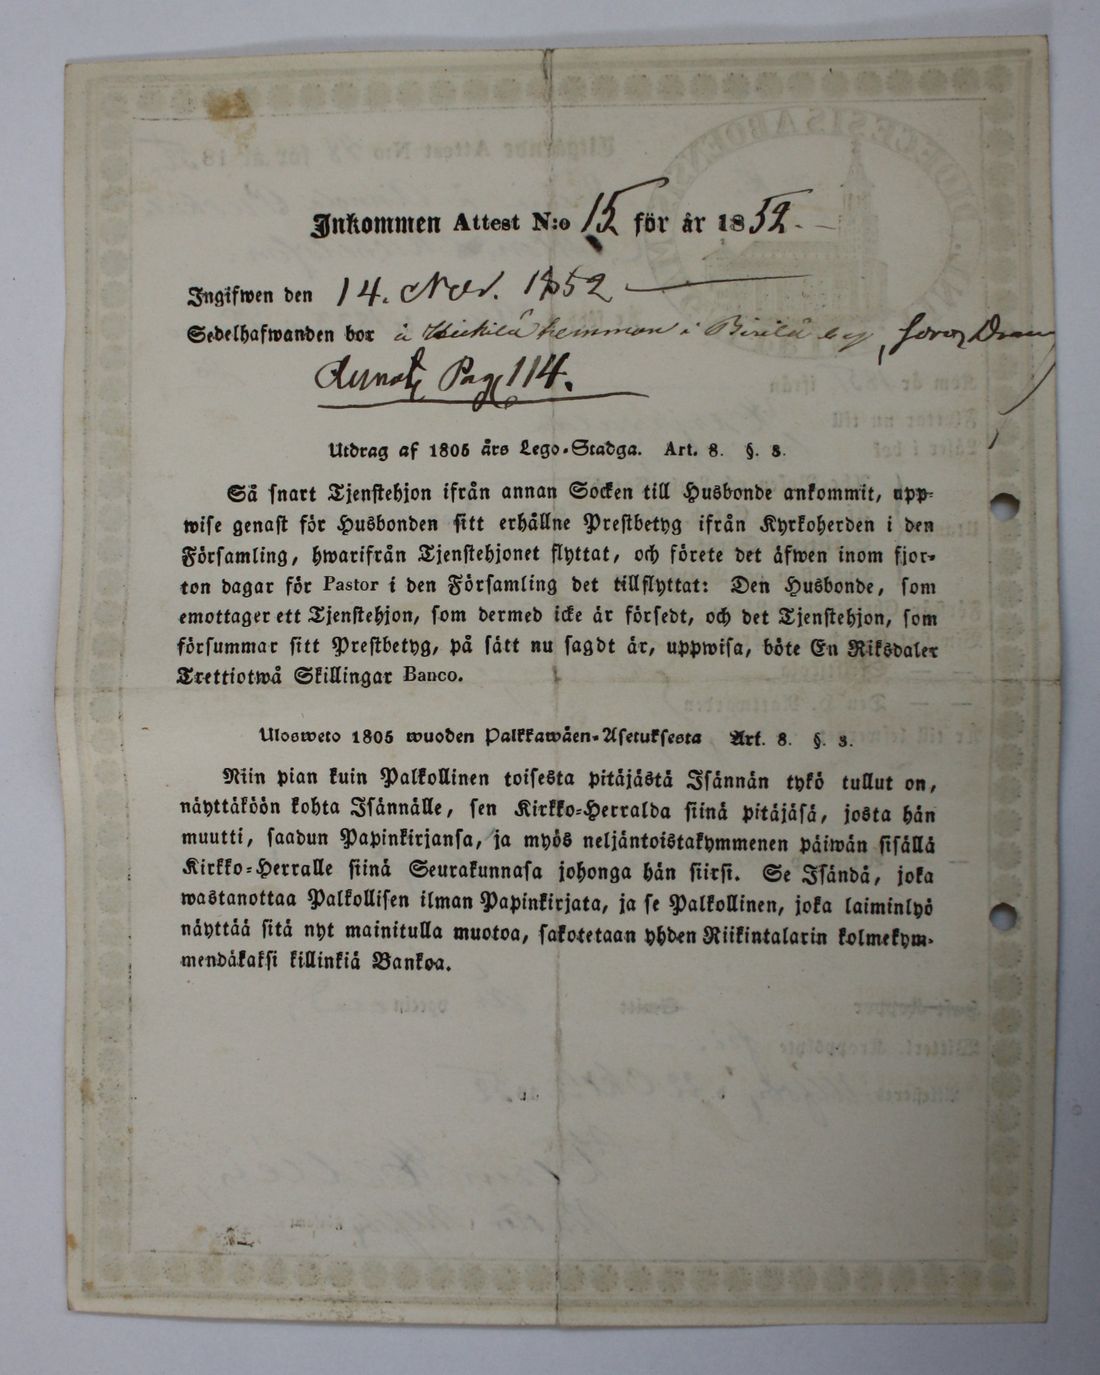 Inkommen Attest N:o 15 för år 1852.
Ingifwen den 14. Nov. 1852
Sedelhafwanden bor å Heikilä hemman i Pirilä by,
Pag 114.
Utdrag af 1805 års Lego-Stadga. Art. 8. §. 3.
Så snart Tjenstehjon ifrån annan Socken till Husbonde ankommit, upp-
wise genast för Husbonden sitt erhållne Prestbetyg ifrån Kyrkoherden i den
Församling, hwarifrån Tjenstehjonet flyttat, och förete det äfwen inom fjor-
ton dagar för Pastor i den Församling det tillflyttat: Den Husbonde, som
emottager ett Tjenstehjon, som dermed icke är försedt, och det Tjenstehjon, som
försummar sitt Prestbetyg, på sätt nu sagdt är, uppwisa, böte En Riksdaler
Trettiotwå Skillingar Banco.
Ulosweto 1805 wuoden Palkkawäen-Asetuksesta Art. 8. §. 3.
Niin pian kuin Palkollinen toisesta pitäjästä Isännän tykö tullut on,
näyttäköön kohta Isännälle, sen Kirkko-Herralda siinä pitäjäsä, josta hän
muutti, saadun Papinkirjansa, ja myös neljäntoistakymmenen päiwän sisällä
Kirkko-Herralle siinä Seurakunnasa johonga hän siirsi. Se Isändä, joka
wastanottaa Palkollisen ilman Papinkirjata, ja se Palkollinen, joka laiminlyö
näyttää sitä nyt mainitulla muotoa, sakotetaan yhden Riikintalarin kolmekym-
mendäkaksi killinkiä Bankoa.